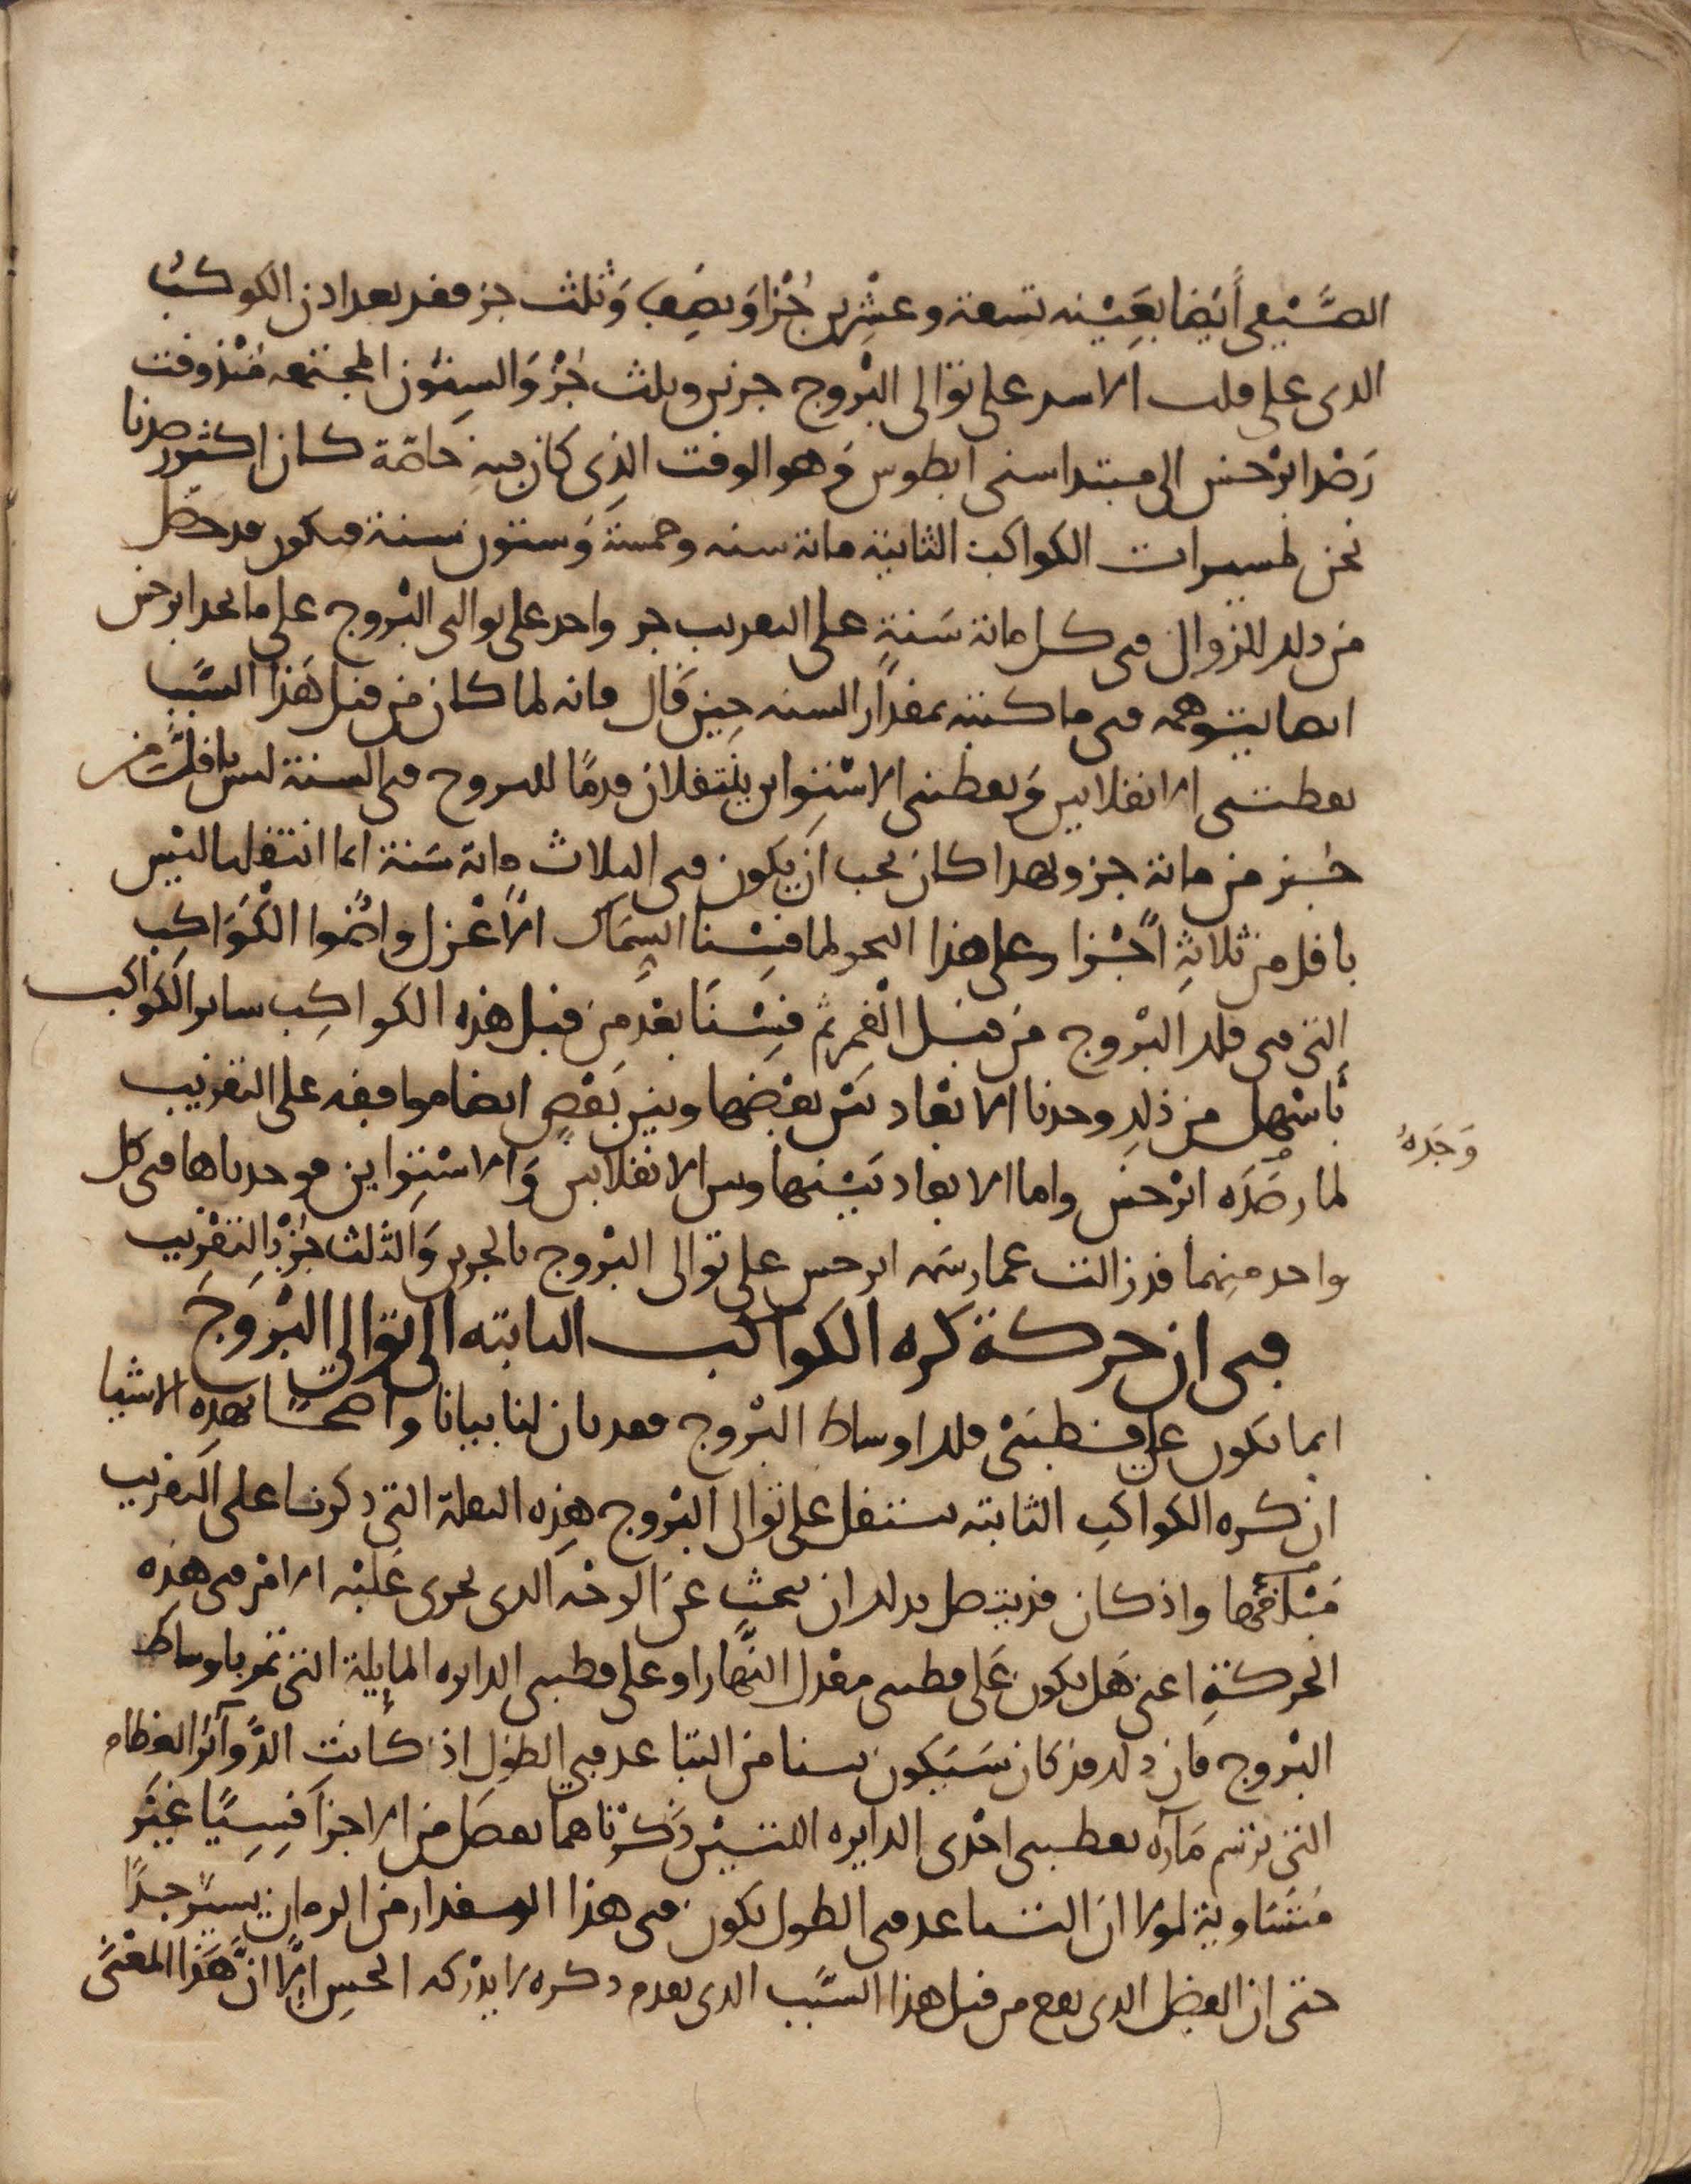 الصَّيْفى أَيضا بعَيْنه تسعة وعشْرين جُزْا وَنصِف وَثلث جز فقد بعد اذن الكوكبُ
الذى على قلب الاسد على توالى البُروج جزين وثلث جُزْ وَالسنون المجتمعه مُنْذ وقت
رَصْد ابرْخس الى مبتدا سنى ابطوس وَهو الوقت الذِى كان فيهِ خاصّة كان اكثر رصدنا
نحن لمسيرات الكواكب الثابتة مائة سنه وخمسة وَستون سنة فيكون قد حصَل
من ذلك للزوال فى كل مائة سَنةٍ على التقريب جز واحد على توالى البُروج على ما نجد ابرخس
ايضا يتوهمه فى ما كتبه بمقدار السنه حِين قال فانه لما كان من قبل هَذا السّبب
نقطتى الانقلابين وَنقطتى الاسْتِوا ين ينتقلان قدمًا للبروج فى السنة ليس باقلّ من
جُز من مائة جز ولهذا كان يجب ان يَكون فى الثلاث مائة سَنة انما انتقلها ليْس
باقل من ثلاثةِ اجْزا وعلى هذا النحو لما قِسْنا السِمَاك الاَعْزل واضوا الكْوَاكِب
التى فى فلك البُروج من قبل القمر ثم قِسْنَا بعْد من قبل هذه الكواكِب ساير الكواكب
بأسْهل من ذلك وجدنا الابعْاد بَيْن بعْضها وبين بَعْضٍ ايضا موافقه على التقريب
لما رصَدَه ابرْخس واما الابعاد بَيْنها وبين الانقلابين وَالاسْتِواين فوجدناها فى كل
وَجَدهُ
واحد مِنهما قد زالت عما رسَمه ابرخس على توالى البُروج بالجزين وَالثلث جُزْ بالتقْريب
فى ان حركة كره الكواكب الثابته الى توالى البُرَوجَ
انما تكون على قطبَىْ فلك اوساط البُروج فقد بان لنا بيانا واضحًا بهذه الاشيا
ان كره الكواكبِ الثابته تنتقل على توالى البُروج هذِه النقلة التى ذكرنا على التقريب
مَبْلَغُها واذ كان قد يتصل بذلك ان نبحث عن الوَجْه الذى يجرى عَليْه الامْر فى هذِه
الحركةِ اعنى هَل يكون عَلى قطبى معْدل النّهار او على قطبى الدايره المايلة التى تمر باوساط
البُروج فان ذلك قد كان سَيَكون بينا من التباعد فى الطوْلِ اذ كانت الدَّوآئر العظام
التى ترتسم مَآره بقطبى احْدى الدايره اللتيْن ذَكرْناهما تفصَل من الاجزآ قِسِيًا غيْر
مُتسَاوية لولا ان التباعد فى الطول يكون فى هذا المقدار من الزمان يسيرًا جدًا
حتى ان الفضل الذى يقع من قبل هذا السّبب الذى تقدم ذكره لا يدْركه الحِس الّا انّ هَذا المعْنَى